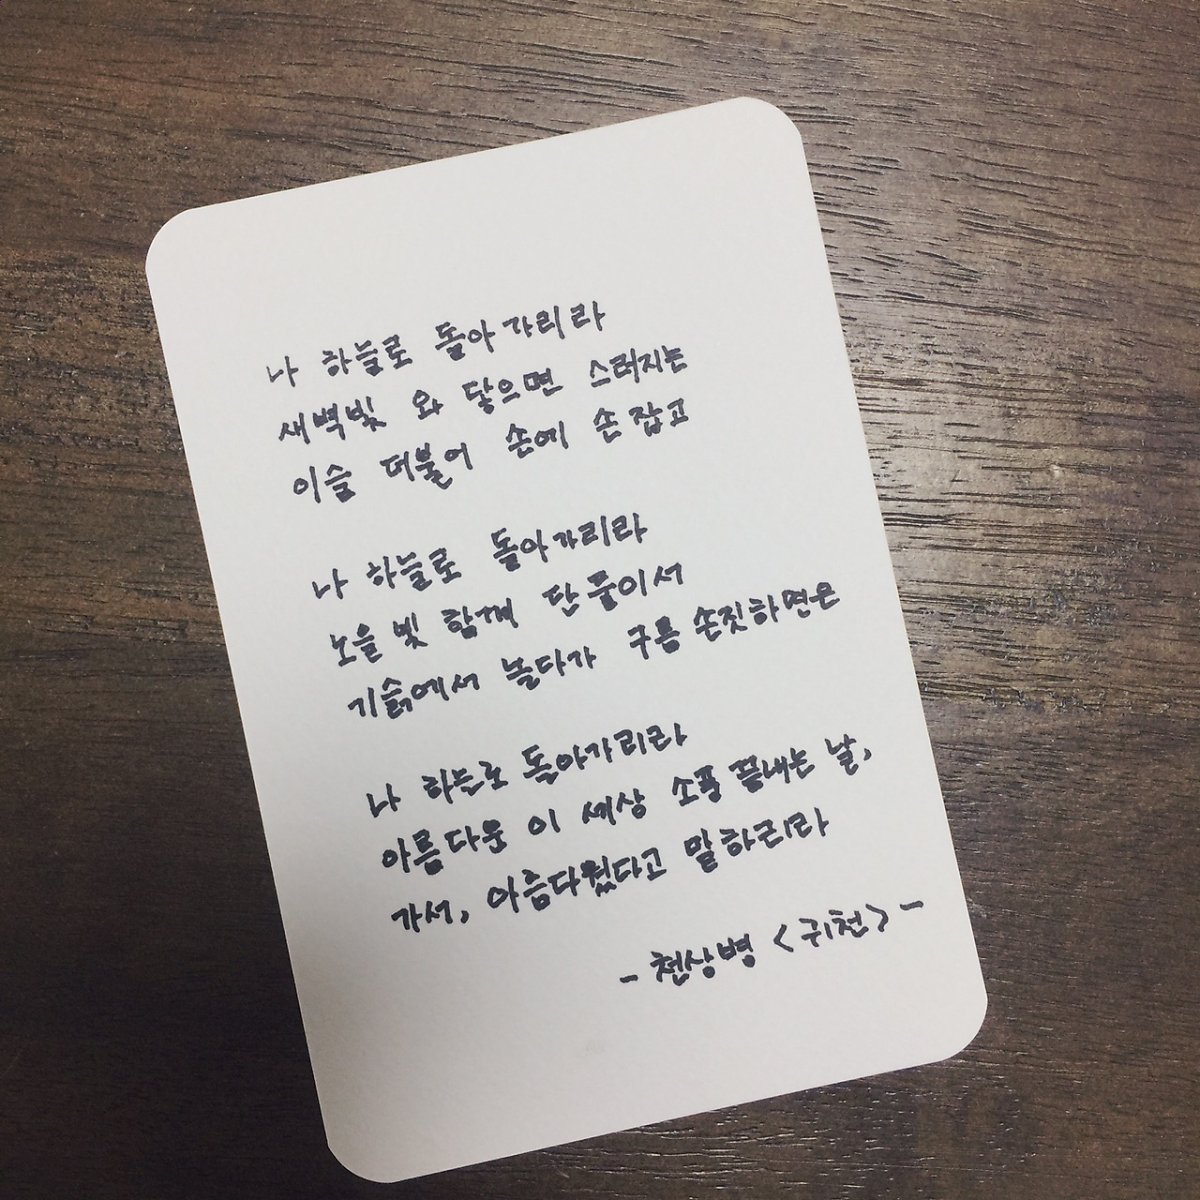 나 하늘로 돌아가리라
새벽빛 와 닿으면 스러지는
이슬 더불어 손에 손잡고
나 하늘로 돌아가리라
노을빛 함께 단 둘이서
기슭에서 놀다가 구름 손짓하면은
나 하늘로 돌아가리라
아름다운 이 세상 소풍 끝내는 날,
가서, 아름다웠다고 말하리라
- 천상병 <귀천> -